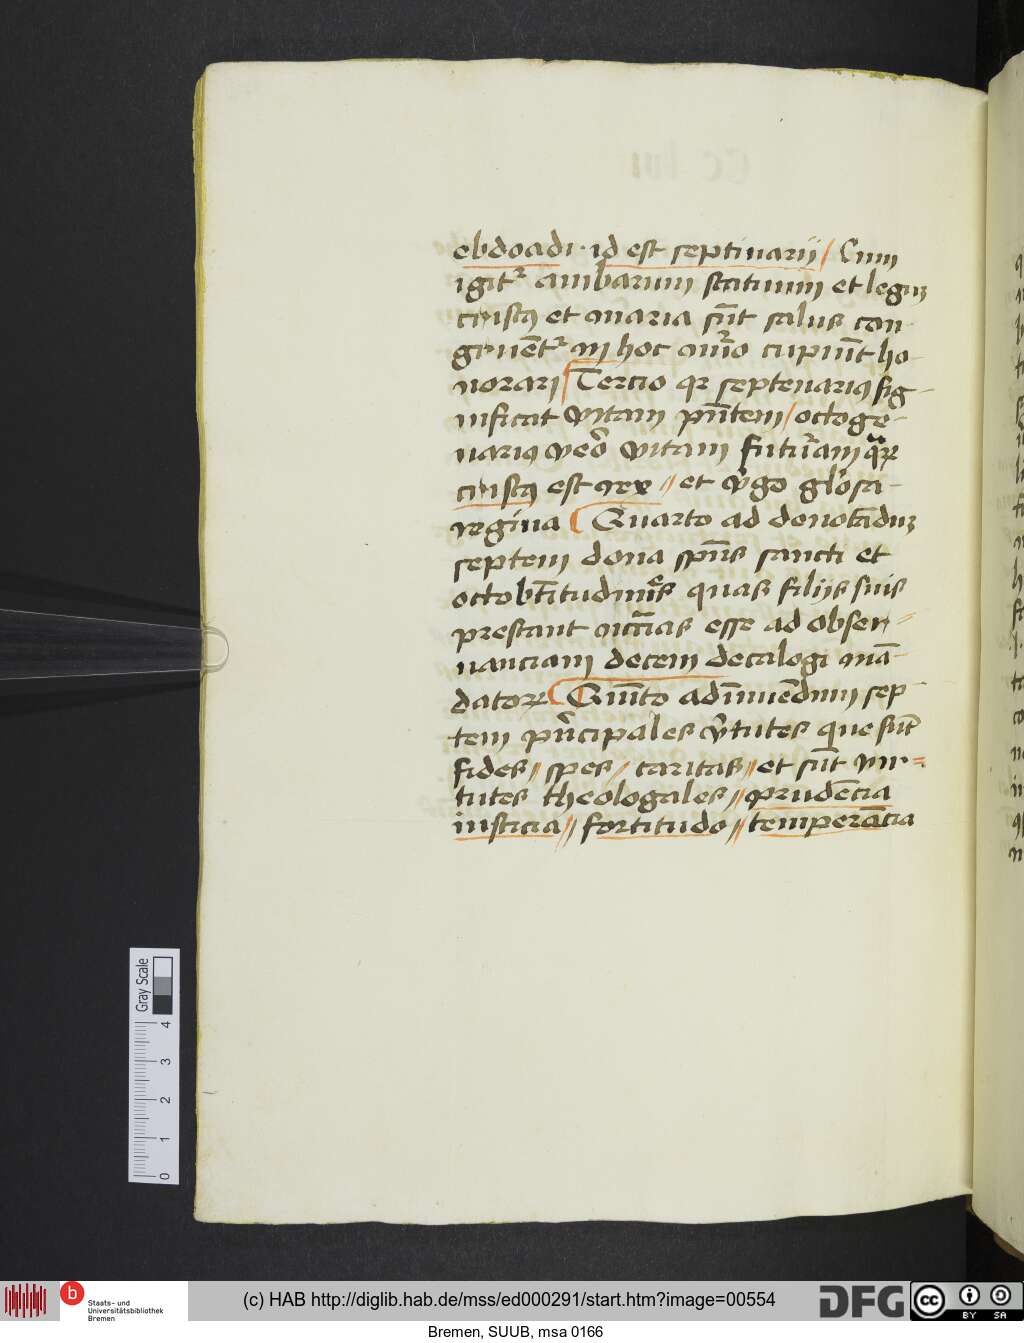 ebdoadi · id est septinarij / Cum
igit᷑ ambarum statuum et legum
cristus et maria su̅t salus con-
gruent᷑ in hoc nu̅ero cupiu̅t ho-
norari Tercio qr septenarius sig-
nificat vitam pn̅tem / octoge-
narius veo̅ vitam futura̅m quaꝝ
cristus est rex // et v̾go glo̾sa
regina Quarto ad denota̅dum
septem dona sp̅us sancti et
octo b̅titudines quas filijs suis
prestant esse ad obser=
vanciam decem decalogi ma̅-
datoꝝ Qui̅to ad i̅nue̅dum sep
tem pn̅cipales v̾tutes que su̅t
fides // spes / caritas // et su̅t vir=
tutes theologales // prude̅cia
iusticia // fortitudo // tempera̅cia
Gray Scale
0 1 2 3 4
b Staats- und
Universitätsbibliothek
Bremen
(c) HAB http://diglib.hab.de/mss/ed000291/start.htm?image=00554
DFG
cc BY SA
Bremen, SUUB, msa 0166